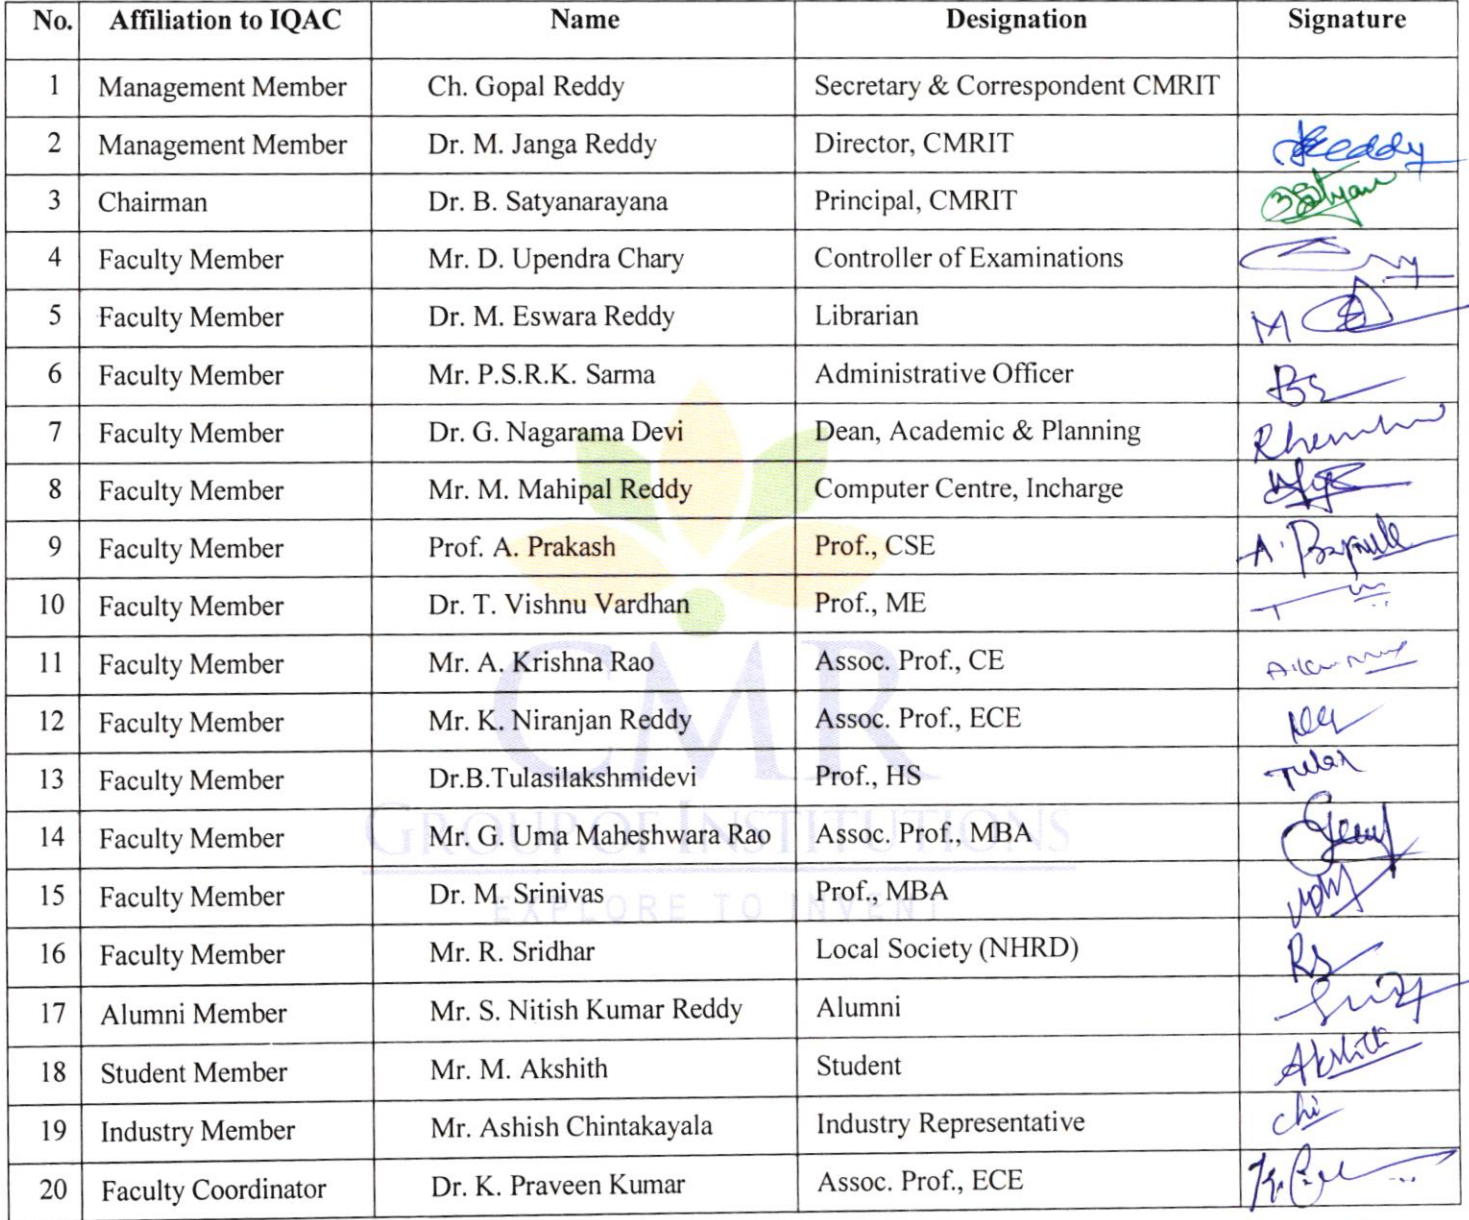 No. Affiliation to IQAC Name Designation Signature
1 Management Member Ch. Gopal Reddy Secretary & Correspondent CMRIT
2 Management Member Dr. M. Janga Reddy Director, CMRIT Reddy
3 Chairman Dr. B. Satyanarayana Principal, CMRIT
4 Faculty Member Mr. D. Upendra Chary Controller of Examinations
5 Faculty Member Dr. M. Eswara Reddy Librarian M
6 Faculty Member Mr. P.S.R.K. Sarma Administrative Officer
7 Faculty Member Dr. G. Nagarama Devi Dean, Academic & Planning
8 Faculty Member Mr. M. Mahipal Reddy Computer Centre, Incharge
9 Faculty Member Prof. A. Prakash Prof., CSE
10 Faculty Member Dr. T. Vishnu Vardhan Prof., ME
11 Faculty Member Mr. A. Krishna Rao Assoc. Prof., CE
12 Faculty Member Mr. K. Niranjan Reddy Assoc. Prof., ECE
13 Faculty Member Dr.B.Tulasilakshmidevi Prof., HS
14 Faculty Member Mr. G. Uma Maheshwara Rao Assoc. Prof., MBA
15 Faculty Member Dr. M. Srinivas Prof., MBA
16 Faculty Member Mr. R. Sridhar Local Society (NHRD) RS
17 Alumni Member Mr. S. Nitish Kumar Reddy Alumni
18 Student Member Mr. M. Akshith Student Akshith
19 Industry Member Mr. Ashish Chintakayala Industry Representative chi
20 Faculty Coordinator Dr. K. Praveen Kumar Assoc. Prof., ECE
CMR
GROUP OF INSTITUTIONS
EXPLORE TO INVENT